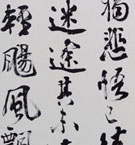 獨悲悟已往
迷途其未
輕颺風飄